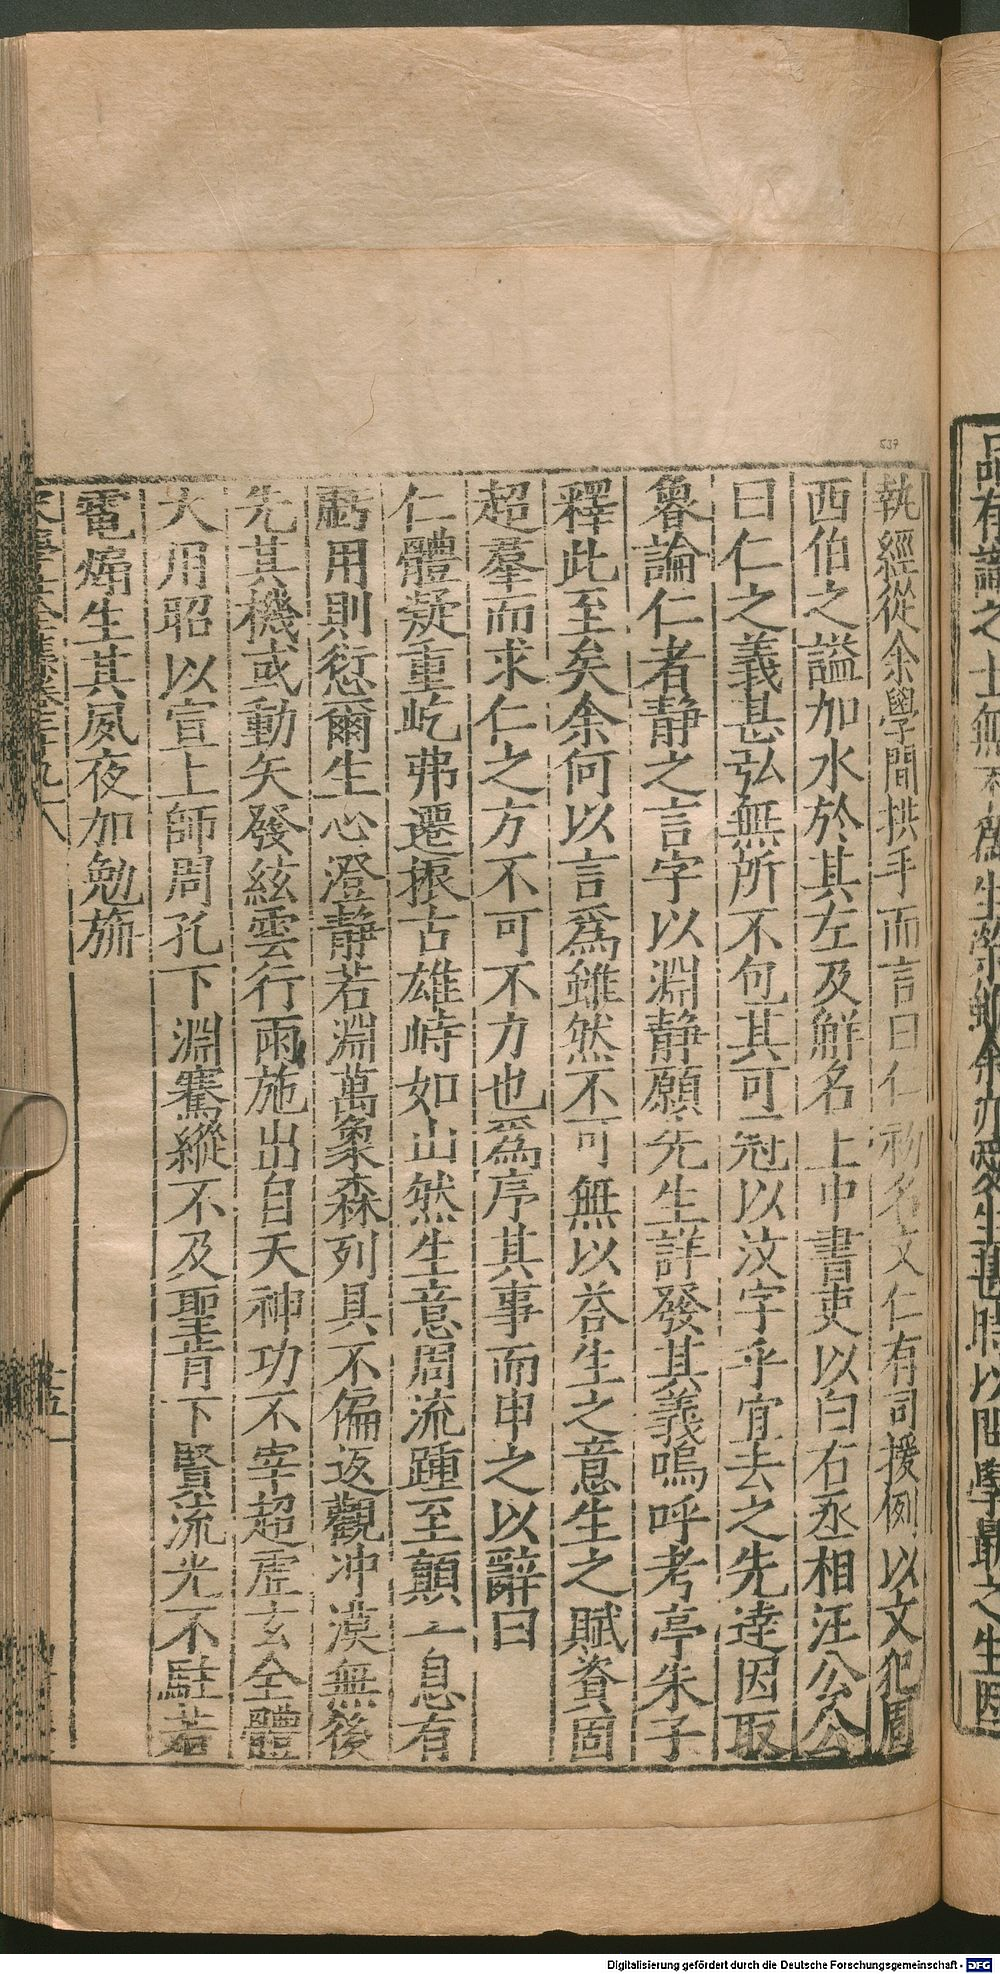 品有論之士無不爲生榮雖余亦愛生甚時以問學最之生因
537
執經從余學間拱手而言曰仁初名文仁有司援例以文犯周
西伯之謚加水於其左及鮮名上中書吏以白右丞相汪公公
曰仁之義甚弘無所不包其可冠以汶字乎宜去之先逹因取
魯論仁者靜之言字以淵靜願先生詳發其義嗚呼考亭朱子
釋此至矣余何以言爲雖然不可無以荅生之意生之賦資固
超羣而求仁之方不可不力也爲序其事而申之以辭曰
仁體凝重屹弗遷振古雄峙如山然生意周流踵至顛一息有
虧用則愆爾生心澄靜若淵萬象森列具不偏返觀冲漠無後
先其機或動矢發絃雲行雨施出自天神功不宰超虛玄全體
大用昭以宣上師周孔下淵騫縱不及聖肯下賢流光不駐若
電煽生其夙夜加勉旃
十五
Digitalisierung gefördert durch die Deutsche Forschungsgemeinschaft - DFG